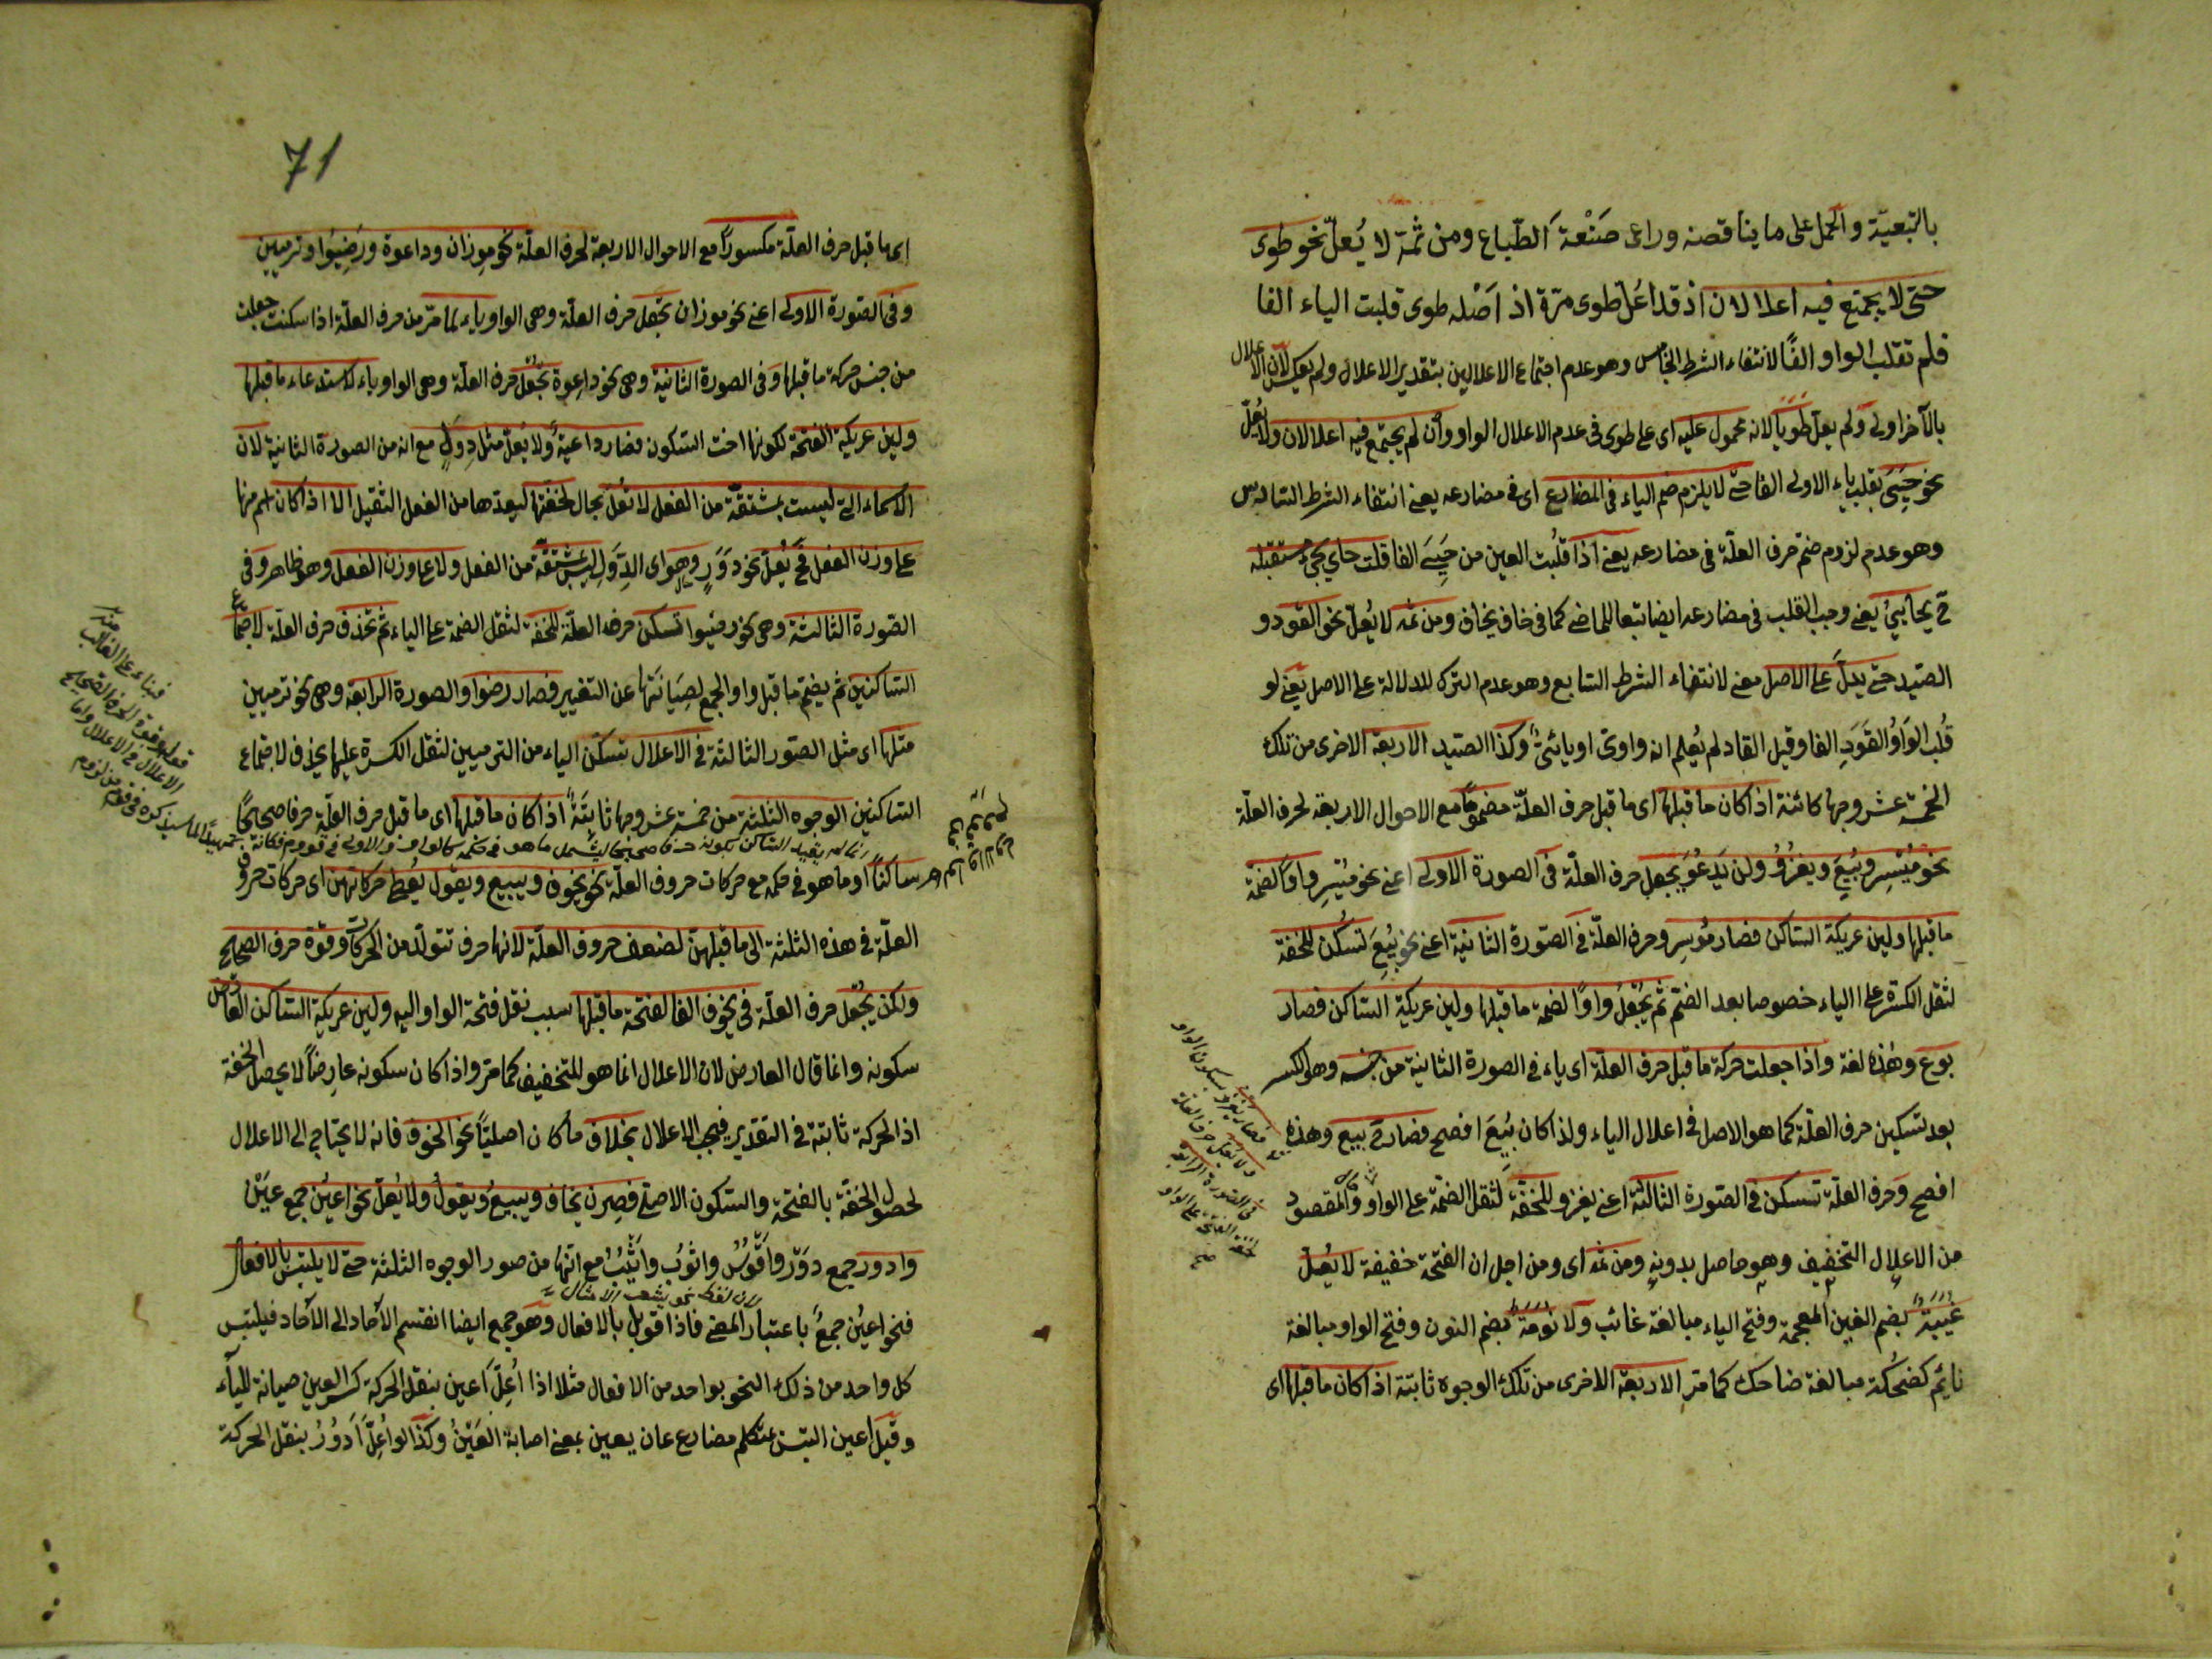 بالتبعيّة والحمل على ما يناقضه وراعى صَنْعَةَ الطّباع ومن ثمة لا يُعلّ نحو طوى
حتى لا يجتمع فيه اعلالان اذ قد اعلّ طوى مرّة اذ اَصْله طوى قلبت الياء الفا
فلم تقلب الواو الفًا لانتفاء الشرط الخامس وهو عدم اجتماع الاعلالين بتقدير الاعلال ولم يعكس لان الاعلال
بالآخر اولى ولم يعلّ طَوَيَا لانه محمول عليه اى على طوى فى عدم الاعلال الواو وأن لم يجتمع فيه اعلالان ولا يُعلّ
نحو حَيِيَ بقلب ياء الاولى الفا حتى لا يلزم ضم الياء فى المضارع اى فى مضارعه يعنى انتفاء الشرط السادس
وهو عدم لزوم ضمّ حرف العلّة فى مضارعه يعنى اذا قلبُت العين من حَيِيَ الفا قلت حاى يجئ مستقبله
ح يحايىُ يعنى وجب القلب فى مضارعه ايضا تبعا للماضى كما فى خاف يخاف ومن ثمه لا يُعلّ نحو القود و
الصيد حتى يدلّ على الاصل معنى لانتفاء الشرط السابع وهو عدم الترك للدلالة على الاصل يعنى لو
قُلب الوَاوُ القَوَدِ الفا وقيل القاد لم يُعلم انه واوىّ او يائىٌّ وكذا الصيد الاربعة الاخرى من تلك
الخمسة عشر وجها كائنة اذا كان ما قبلها اى ما قبل حرف العلّة مضمومًا مع الاحوال الاربعة لحرف العلّة
نحو مُيْسِر وبُيِعَ ويغزُوُ ولن يَدعُوَ يجعل حرف العلّة فى الصورة الاولى اعنى نحو مُيْسِر واوًا لضمة
ما قبلها ولين عريكة الساكن فصار مُوسِر وحرف العلّة فى الصّورة الثانية اعنى نحو بُيِعَ تسكن للخفة
لثقل الكسرة على الياء خصوصا بعد الضمّ ثم يُجْعَلُ واوًا لضمة ما قبلها ولين عريكة الساكن فصار
بوع وهذه لغة واذا جعلت حركة ما قبل حرف العلّة اى ياء فى الصورة الثانية من جنسه وهو الكسر
بعد تسكين حرف العلّة كما هو الاصل فى اعلال الياء ولذا كان بِيْعَ افصح فصار ح بيع وهذه
افصح وحرف العلّة تسكن فى الصّورة الثالثة اعنى يغزو للخفّة لثقل الضمّة على الواو والمقصود
من الاعلال التخفيف وهو حاصل بدونه ومن ثمه اى ومن اجل ان الفتحة خفيفة لا يُعلّ
غُيَبَةٌ بضم الغين المعجمة وفتح الياء مبالغة غائب ولا نُوَمَةٌ بضم النون وفتح الواو مبالغة
نايم كضُحَكة مبالغة ضاحك كما مر الاربعة الاخرى من تلك الوجوه ثابتة اذا كان ما قبلها اى
71
اى ما قبل حرف العلّة مكسورًا مع الاحوال الاربعة لحرف العلّة نحو مِوزان وداعوة ورَضِيُوا وترميين
وفى الصّورة الاولى اعنى نحو موزان يجعل حرف العلّة وهى الواو ياء لما مرّ من حرف العلّة اذا سكنت جعلت
من جنس حركة ما قبلها وفى الصورة الثانية وهى نحو داعوة يُجْعَلُ حرف العلّة وهى الواو ياء لاستدعاء ما قبلها
ولين عريكة الفتحة لكونها اخت السكون فصار داعية ولا يُعلّ مثل دِوَلٍ مع انه من الصورة الثانية لان
الاسماء التى ليست بمشتقّة من الفعل لا تُعَلّ بحال لخفّتها لبعدها من الفعل الثقيل الا اذا كان اسم منها
على وزن الفعل فح يُعَلّ نحو دَوَرٍ وهو اى الدِّوَلِ ليس بمشتقّة من الفعل ولا على وزن الفعل وهو ظاهر وفى
الصّورة الثالثة وهى نحو رضيوا تسكن حرف العلّة للخفّة لثقل الضمة على الياء ثم تحذف حرف العلّة لاجتماع
الساكنين ثم يضمّ ما قبل واو الجمع لصِيَانَتها عن التغيير فصار رضوا والصورة الرابعة وهى نحو ترميين
مثلها اى مثل الصّور الثالثة فى الاعلال تسكّن الياء من الترميين لثقل الكسرة عليها يحذف لاجتماع
الساكنين الوجوه الثلثة من خمسة عشر وجها ثابتَةً اذا كان ما قبلها اى ما قبل حرف العلّة حرفا صحيحًا
ساكنًا او ما هو فى حكمه مع حركات حروف العلّة نحو يخوف ويبيع ويقول يُعطى حركاتهن اى حركات حروف
العلّة فى هذه الثلثة الى ما قبلهنّ لضعف حروف العلّة لانها حرف تتولّد من الحركات وقوّة حرف الصحيح
ولكن يُجْعَل حرف العلّة فى يخوف الفا لفتحة ما قبلها سبب نقل فتحة الواو اليه ولين عريكة الساكن العارض
سكونه وانما قال العارض لان الاعلال انما هو للتخفيف كما مرّ واذا كان سكونه عارضًا لا يحصل الخفة
اذ الحركة ثابتة فى التقدير فيجب الاعلال بخلاف ما كان اصليّا نحو الخوف فانه لا يحتاج الى الاعلال
لحصول الخفّة بالفتحة والسكون الاصلى فصرن يخاف ويبيعُ ويقولُ ولا يُعلّ نحو اعيُن جمع عَيْن
وادور جمع دَوَر وَاَقْوُسٌ واثْوُب وانْيُبٌ مع انّها من صور الوجوه الثلثة حتى لا يلتبس بالافعال
فنحو اعيُن جمعٌ باعتبار المعنى فاذا قوبل بالافعال وهو جمع ايضا انقسم الآحاد الى الآحاد فيلتبس
كل واحد من ذلك النحو بواحد من الافعال مثلا اذا اُعِلّ اَعين بنقل الحركة كسر العين صيانة للياء
وقيل اعين التبس بمتكلم مضارع عان يعين بمعنى اصابة العَيْن وكذا لو اُعِلّ اَدْوُرٌ بنقل الحركة